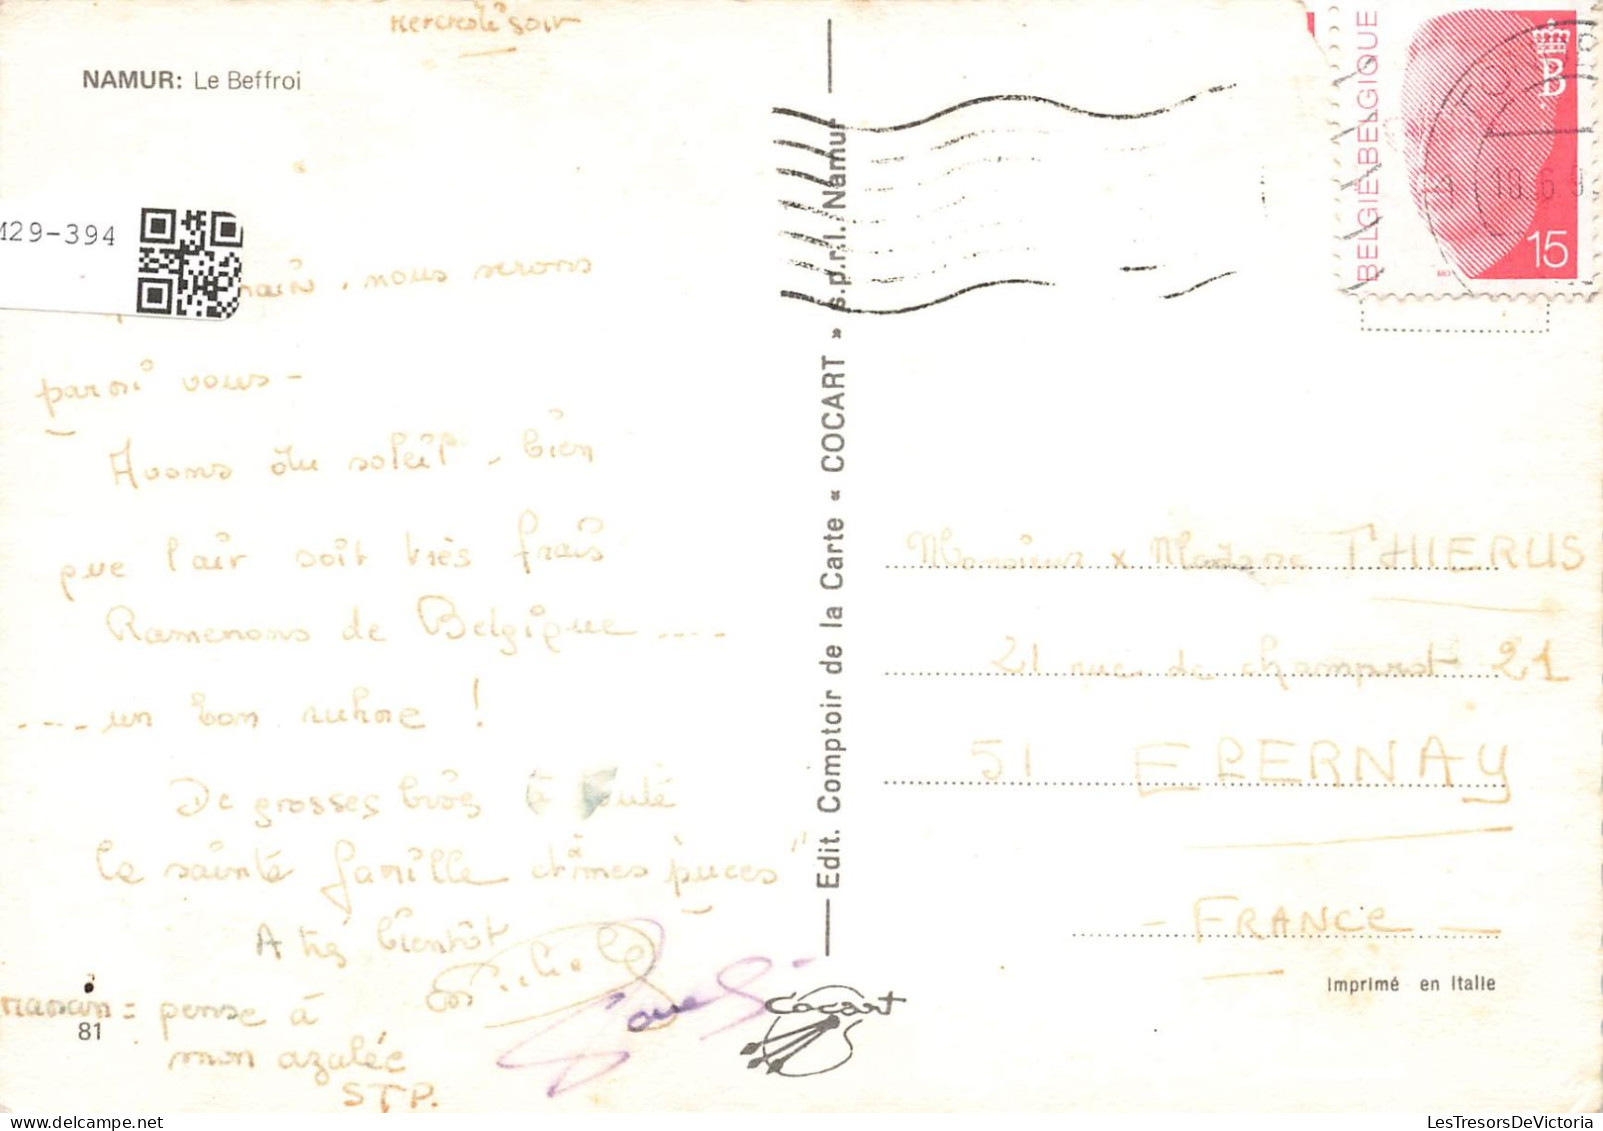 soir
NAMUR: Le Beffroi
M29-394
nous serons
vous -
Avons du soleil - bien
que l'air soit très frais
Ramenons de Belgique ....
.... un bon rhume !
De grosses bises à toute
la sainte famille
puces"
A très bientôt
maman = pense à
81
mon azalée
STP.
Edit. Comptoir de la Carte « COCART » s.p.r.l. Namur
cocart
BELGIË BELGIQUE
B
15
Monsieur & Madame
21 rue de 21
51 EPERNAY
- FRANCE -
Imprimé en Italie
LesTresorsDeVictoria.com